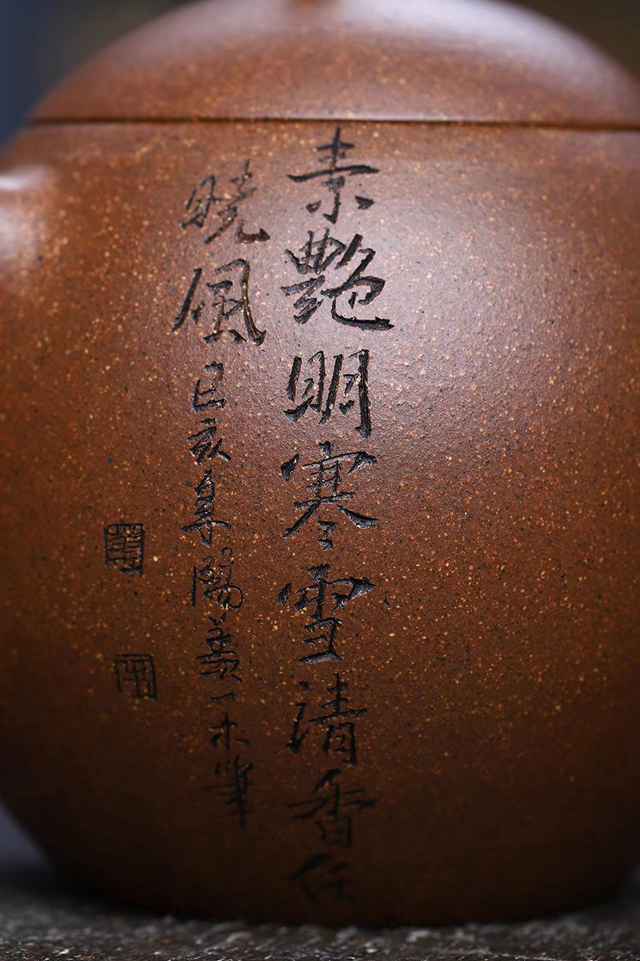 素艷明寒雪清香任
曉風己亥阳羨一木筆